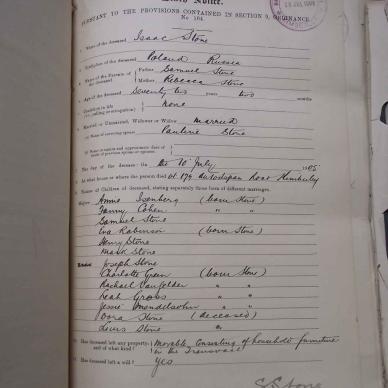 Death Notice.
PURSUANT TO THE PROVISIONS CONTAINED IN SECTION 9, ORDINANCE
No. 104.
Name of the deceased Isaac Stone
Birthplace of the deceased Poland Russia
Names of the Parents of the deceased Father Samuel Stone
Mother Rebecca Stone
Age of the deceased Seventy two years two months
Condition in life none
Married or Unmarried, Widower or Widow married
Name of surviving spouse Pauline Stone
The day of the decease: On the 10 July
At what house or where the person died at 179 Kimberley
Names of Children of deceased, stating separately those born of different marriages.
Majors Annie Isenberg (born Stone)
Fanny Cohen " "
Samuel Stone
Eva Robinson (born Stone)
Henry Stone
Mark Stone
Joseph Stone
Charlotte Green (born Stone)
Rachael " "
Leah Gross " "
Jessie Mendelsohn " "
Dora Stone (deceased)
Louis Stone "
Has deceased left any property; and of what kind? Movable, Consisting of household furniture
in the Transvaal
Has deceased left a will? Yes